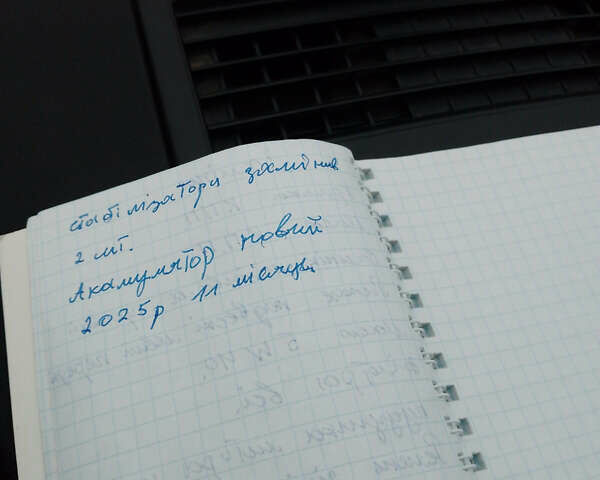 стабілізатори замінив
2 шт.
Акамулятор новий
2025р 11 місяць